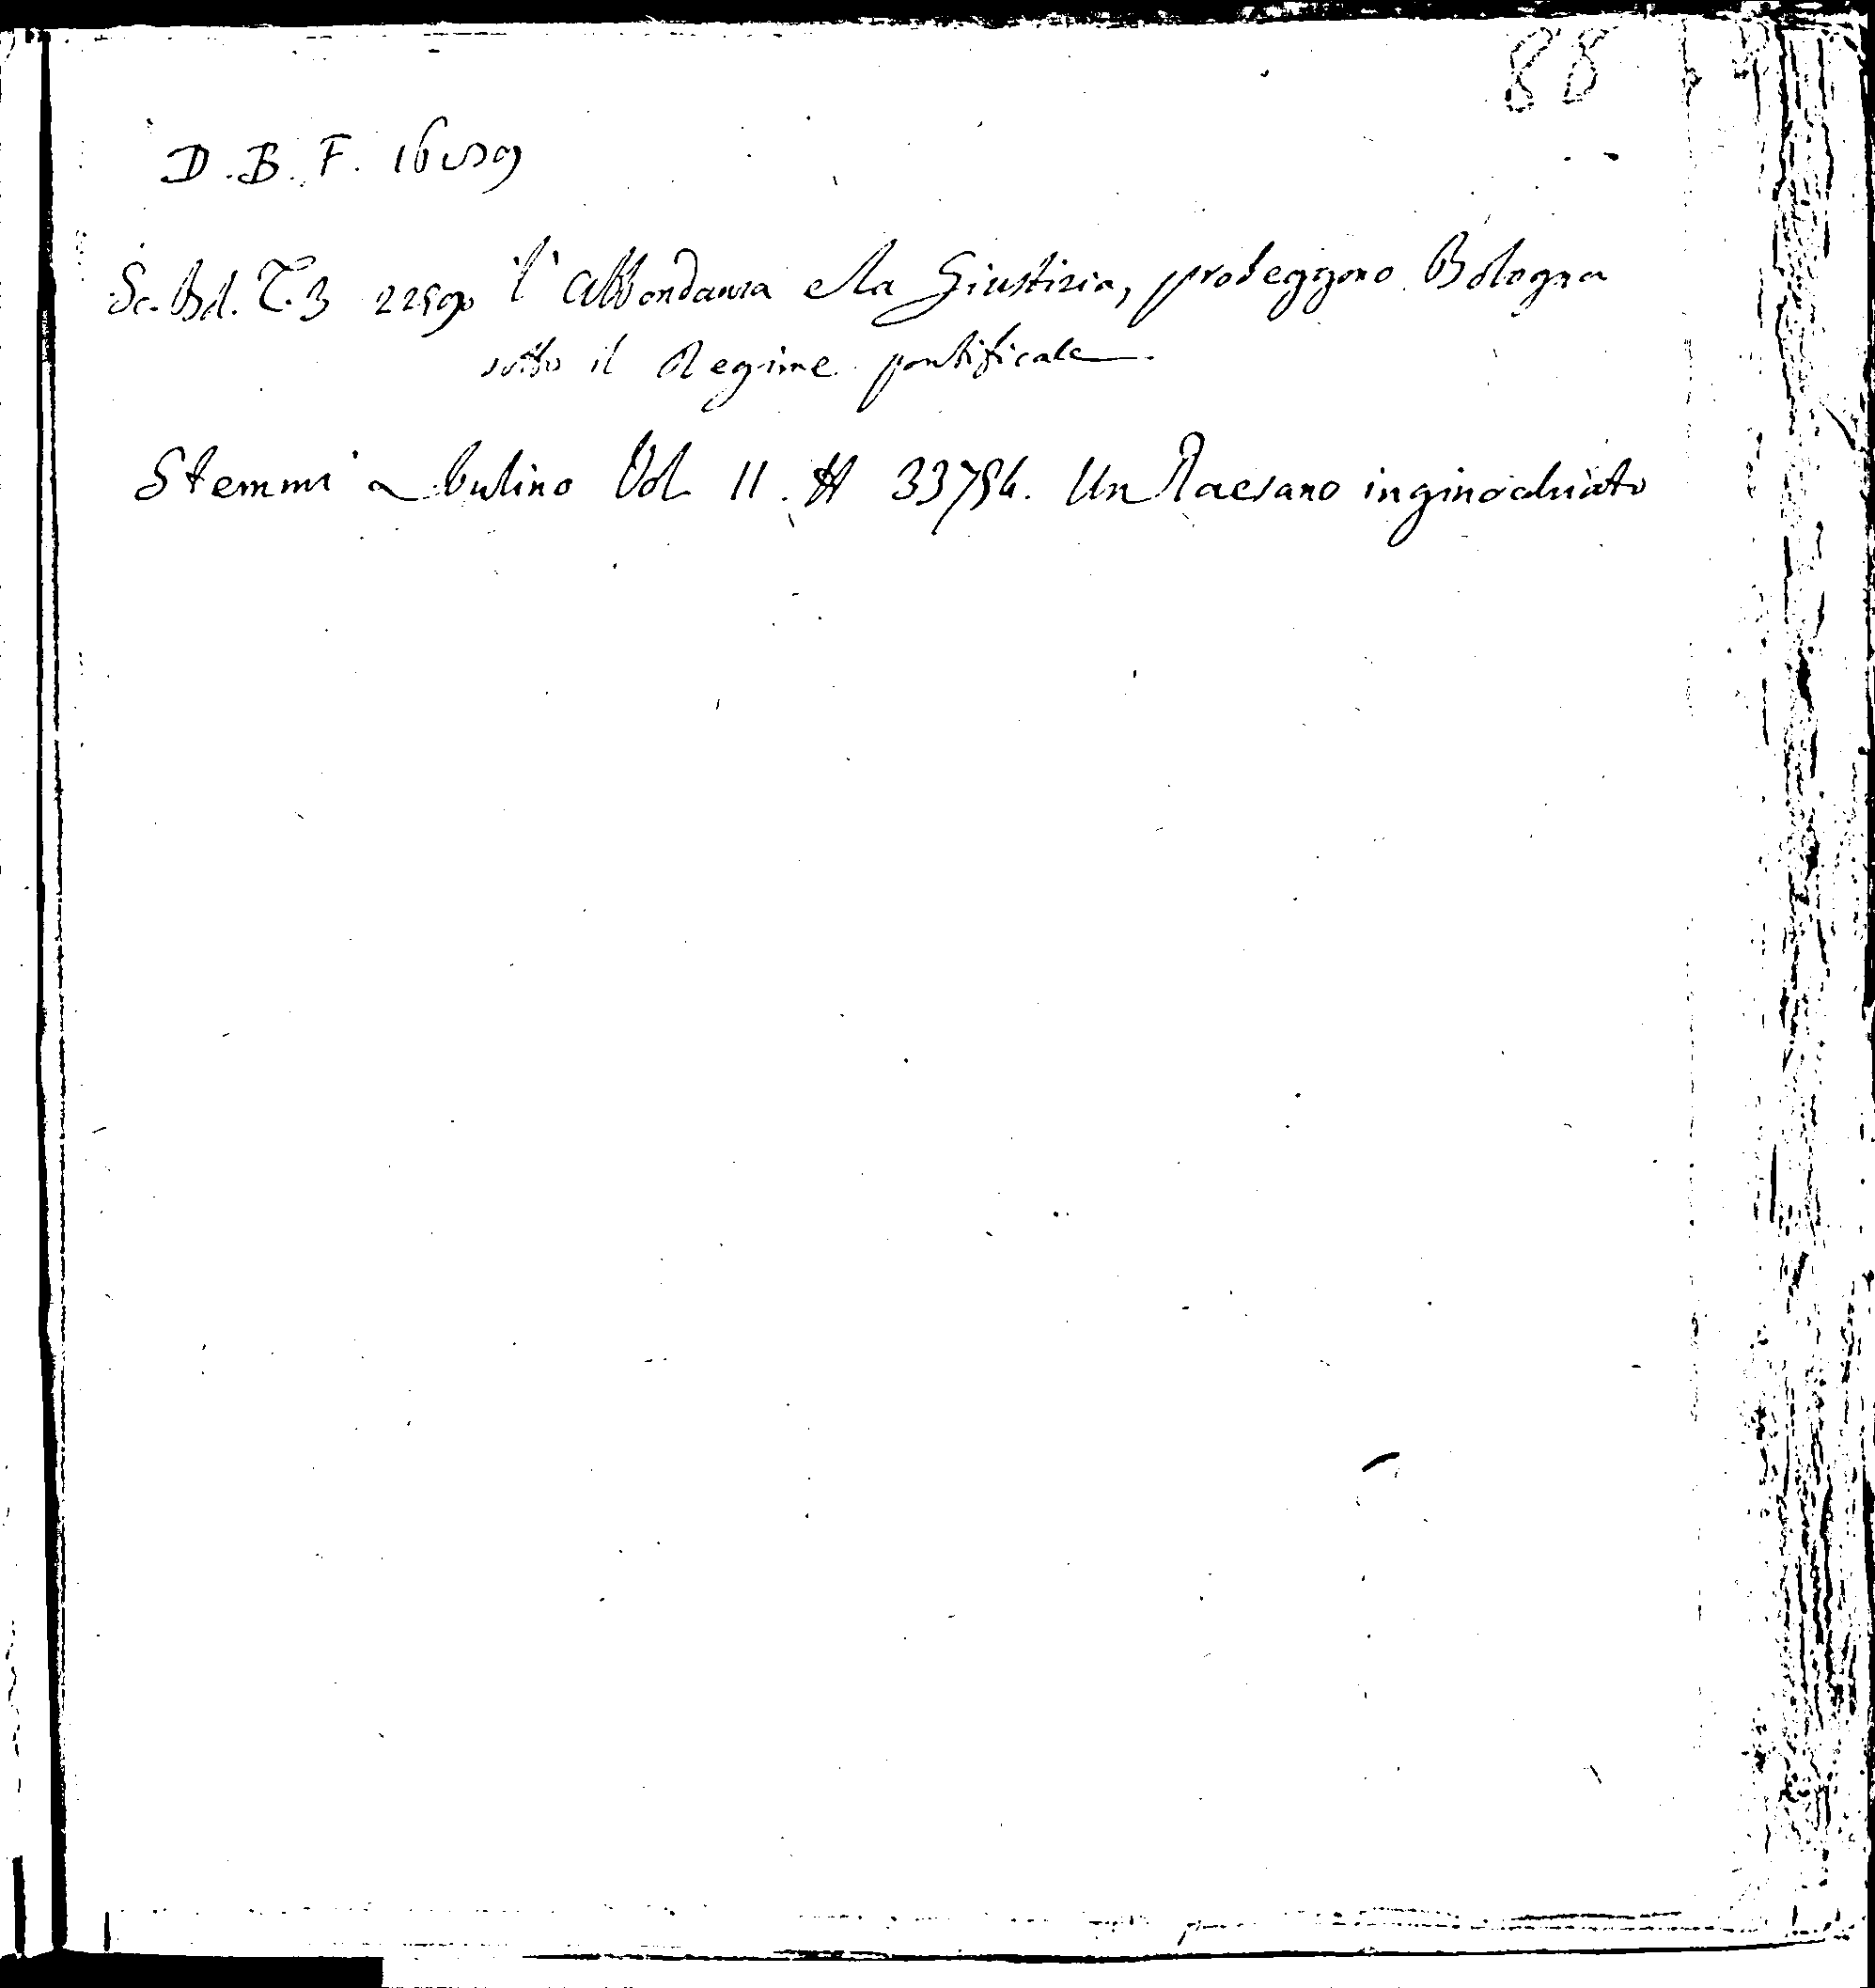 88
D. B. F. 1659
Sc. Bol. T. 3 22590 l'Abbondanza e la Giustizia, proteggono Bologna
sotto il Regime pontificale
Stemmi a bulino Vol. II. # 33754. Un Paesano inginochiato